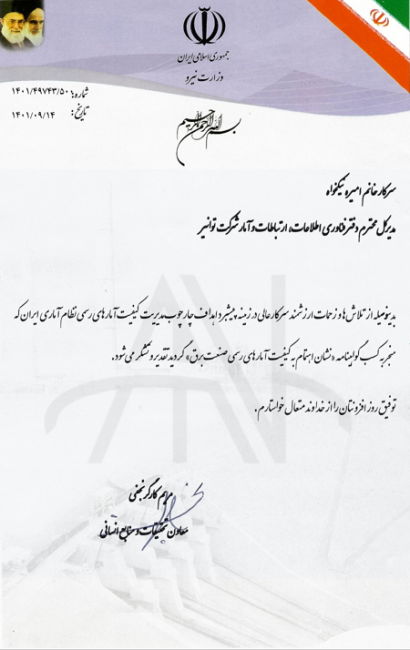 جمهوری اسلامی ایران
وزارت نیرو
شماره: ۱۴۰۱/۴۹۷۴۳/۵۰
تاریخ: ۱۴۰۱/۰۹/۱۴
بسم الله الرحمن الرحیم
سرکار خانم امیره نیکخواه
مدیرکل محترم دفتر فناوری اطلاعات، ارتباطات و آمار شرکت توانیر
بدینوسیله از تلاش ها و زحمات ارزشمند سرکار عالی در زمینه پیشبرد اهداف چارچوب مدیریت کیفیت آمارهای رسمی نظام آماری ایران که
منجر به کسب گواینامه «نشان اهتمام به کیفیت آمارهای رسمی صنعت برق» گردید تقدیر و تشکر می شود.
توفیق روز افزونتان را از خداوند متعال خواستارم.
مریم کارگر نجفی
معاون تحقیقات و منابع انسانی